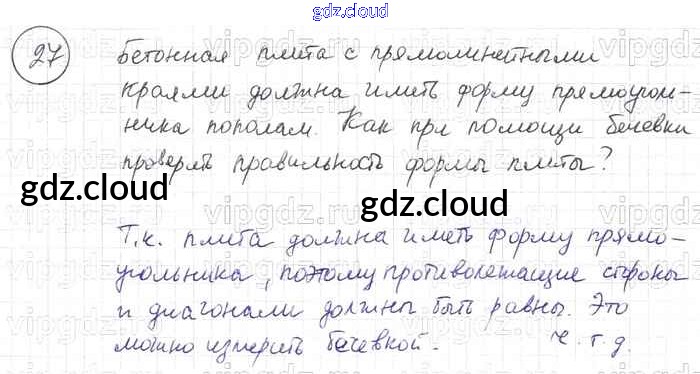 gdz.cloud
27 Бетонная плита с прямолинейными
краями должна иметь форму прямоуголь-
ника пополам. Как при помощи бечевки
проверять правильность формы плиты?
gdz.cloud
gdz.cloud
Т.к. плита должна иметь форму прямо-
угольника, поэтому противолежащие стороны
и диагонали должны быть равны. Это
можно измерить бечевкой. ч.т.д.